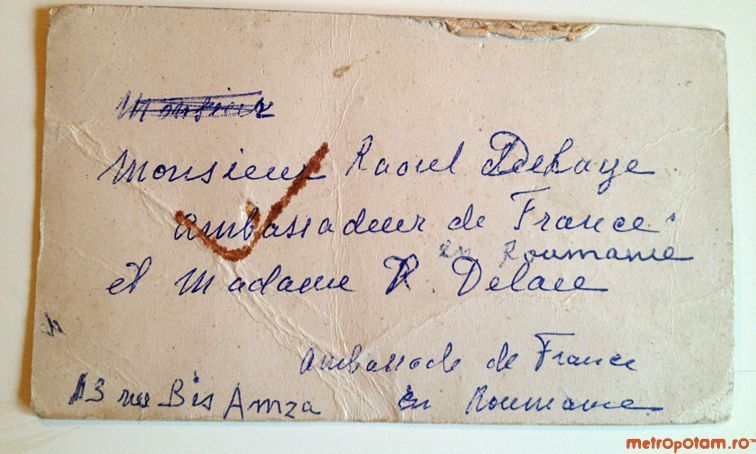 Monsieur
Monsieur Raoul Delaye
Ambassadeur de France
en Roumanie
et Madame R. Delaee
Ambassade de France
13 rue Bis Amza en Roumanie
metropotam.ro